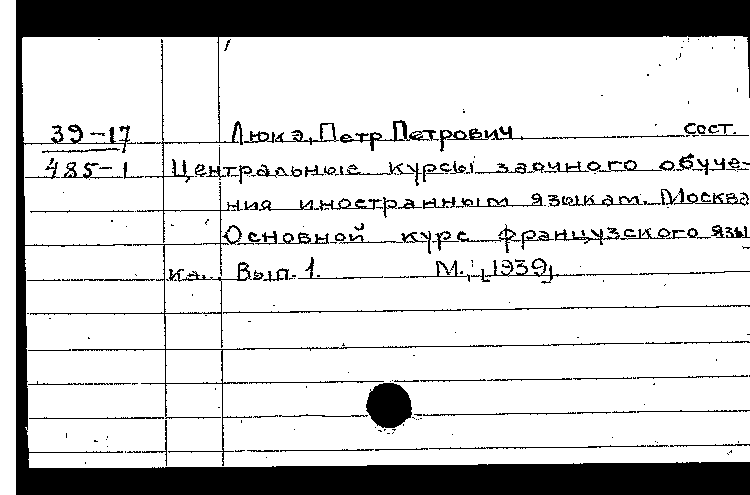 39-17 Люкэ, Петр Петрович. сост.
485-1 Центральные курсы заочного обуче-
ния иностранным языкам. Москва
Основной курс французского язы
ка. Вып. 1. М., [1939].